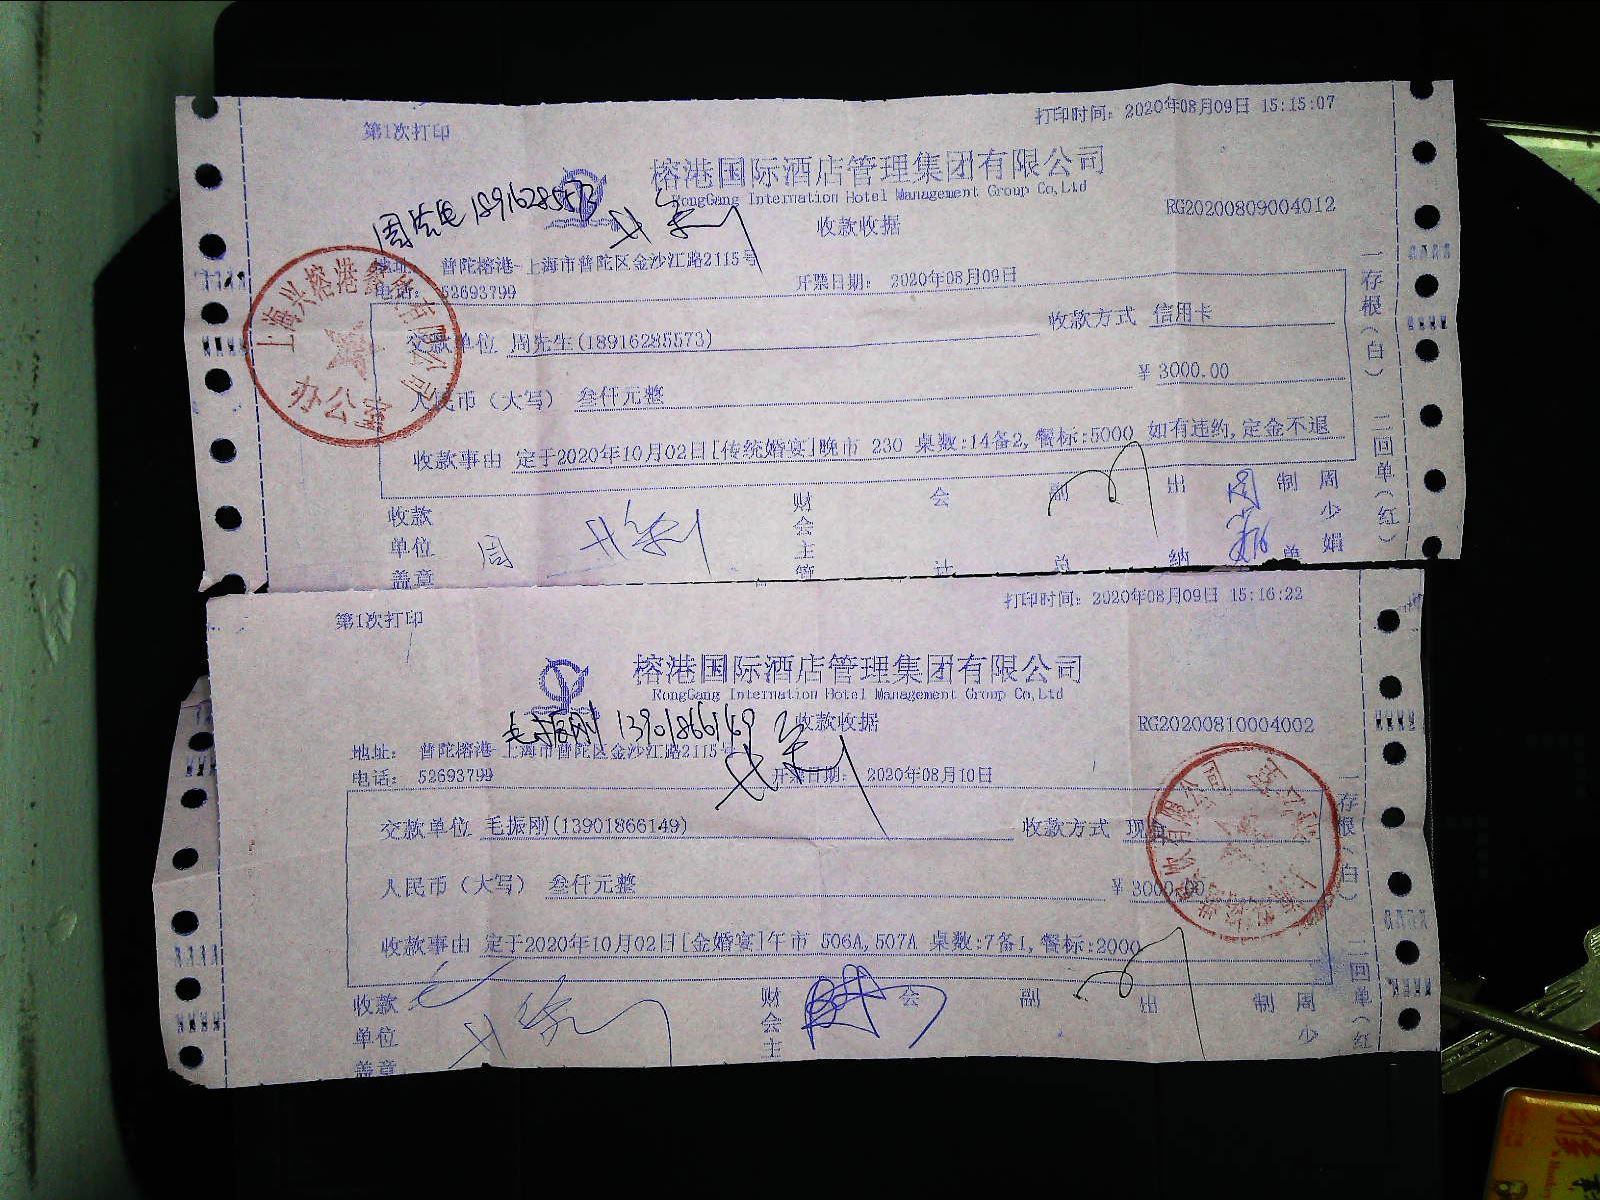 第1次打印
打印时间: 2020年08月09日 15:15:07
榕港国际酒店管理集团有限公司
RongGang Internation Hotel Management Group Co,Ltd
18916285573
收款收据
RG20200809004012
地址: 普陀榕港-上海市普陀区金沙江路2115号
电话: 52693799
开票日期: 2020年08月09日
交款单位 周先生(18916285573)
收款方式 信用卡
人民币（大写） 叁仟元整
¥ 3000.00
收款事由 定于2020年10月02日[传统婚宴]晚市 230 桌数:14备2,餐标:5000 如有违约,定金不退
收款单位盖章 周
财会主管
会计
副总
出纳
制单 周少娟
一存根(白) 二回单(红)
办公室
第1次打印
打印时间: 2020年08月09日 15:16:22
榕港国际酒店管理集团有限公司
RongGang Internation Hotel Management Group Co,Ltd
毛振刚 13901866149
收款收据
RG20200810004002
地址: 普陀榕港-上海市普陀区金沙江路2115号
电话: 52693799
开票日期: 2020年08月10日
交款单位 毛振刚(13901866149)
收款方式 现金
人民币（大写） 叁仟元整
¥ 3000.00
收款事由 定于2020年10月02日[金婚宴]午市 506A,507A 桌数:7备1,餐标:2000
收款单位盖章
财会主
会
副
出
制 周少
一存根(白) 二回单(红